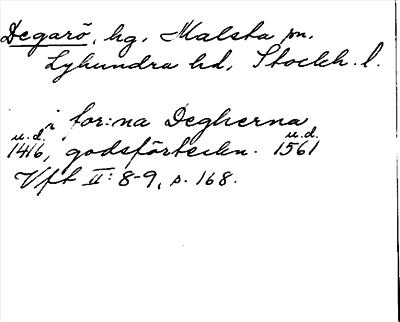 Degarö, hg, Malsta sn.
Lyhundra hd, Stockh. l.
i for:na Degherna
u.d. u.d.
1416, godsförteckn. 1561
Vft II: 8-9, s. 168.